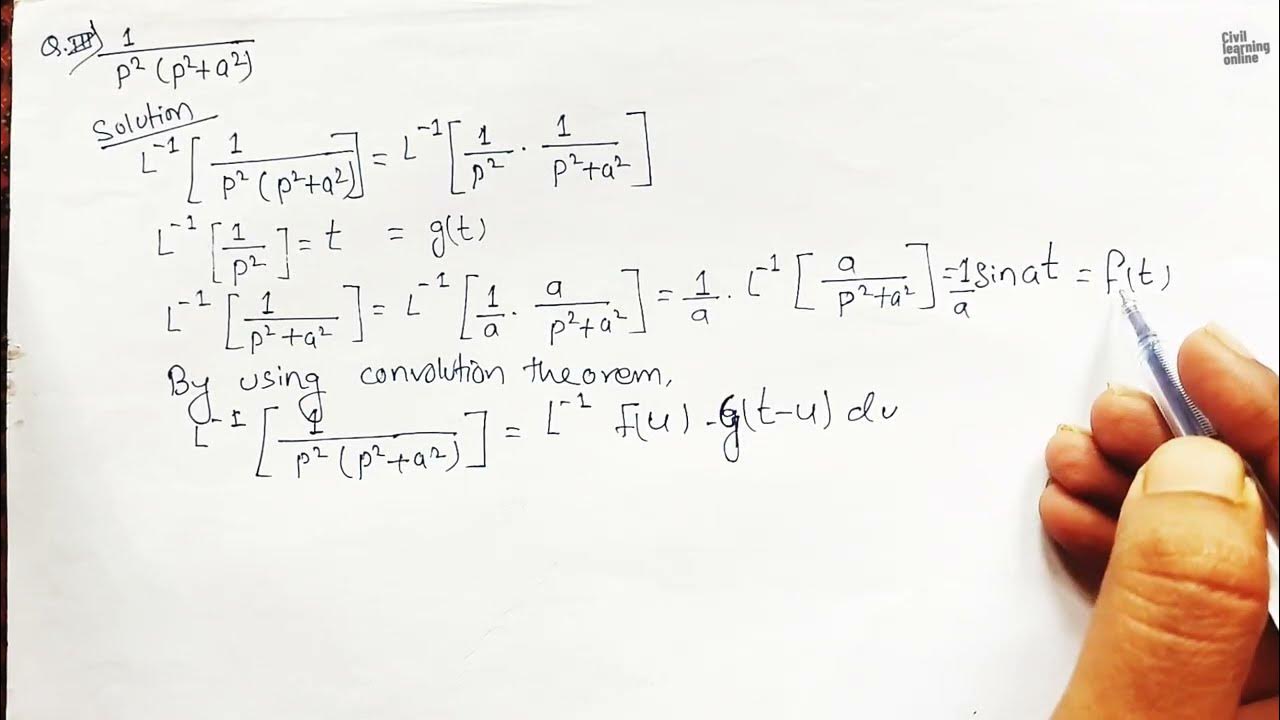 Q.III) 1/(p²(p²+a²))
Civil
learning
online
Solution
L⁻¹[1/(p²(p²+a²))] = L⁻¹[1/p² · 1/(p²+a²)]
L⁻¹[1/p²] = t = g(t)
L⁻¹[1/(p²+a²)] = L⁻¹[1/a · a/(p²+a²)] = 1/a · L⁻¹[a/(p²+a²)] = 1/a sin at = f(t)
By using convolution theorem,
L⁻¹[1/(p²(p²+a²))] = L⁻¹ f(u) · g(t-u) du